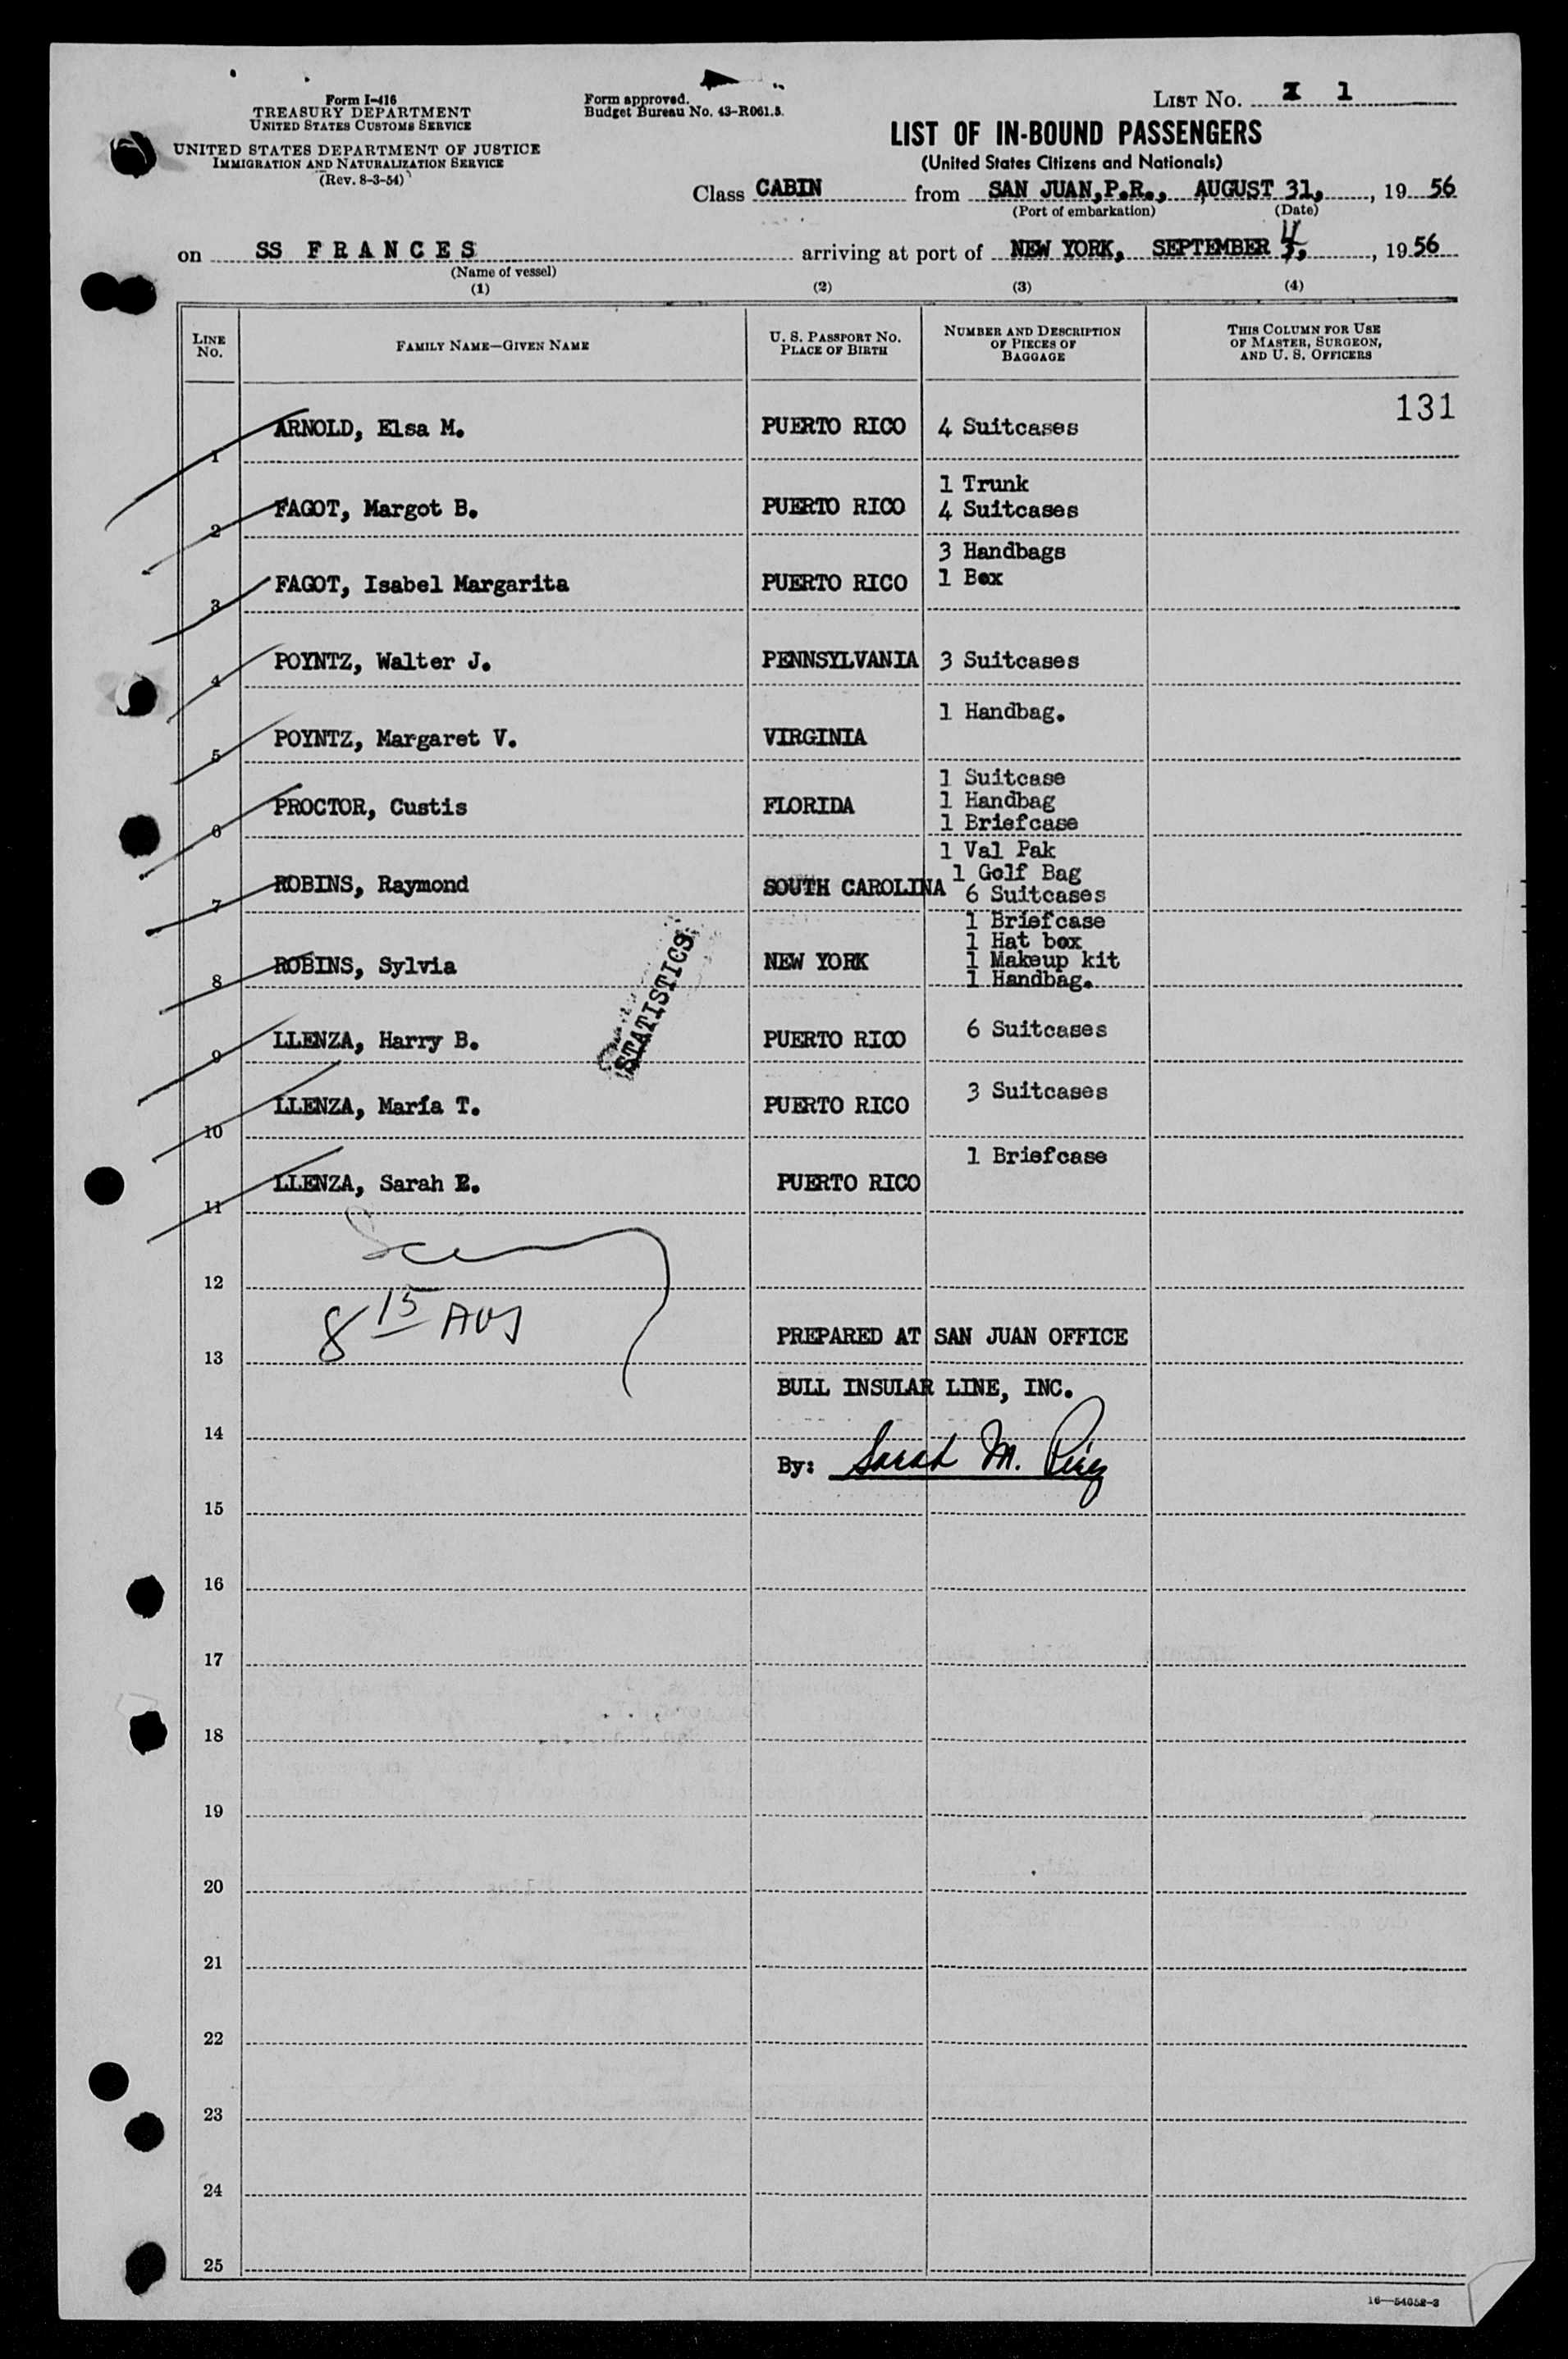 Form I-416
TREASURY DEPARTMENT
UNITED STATES CUSTOMS SERVICE
UNITED STATES DEPARTMENT OF JUSTICE
IMMIGRATION AND NATURALIZATION SERVICE
(Rev. 8-3-54)
Form approved.
Budget Bureau No. 43-R061.5.
LIST NO. 1
LIST OF IN-BOUND PASSENGERS
(United States Citizens and Nationals)
Class CABIN from SAN JUAN,P.R., AUGUST 31, , 19 56
(Port of embarkation) (Date)
on SS FRANCES arriving at port of NEW YORK, SEPTEMBER 4, , 19 56
(Name of vessel)
(1) (2) (3) (4)
LINE NO. FAMILY NAME—GIVEN NAME U. S. PASSPORT NO. PLACE OF BIRTH NUMBER AND DESCRIPTION OF PIECES OF BAGGAGE THIS COLUMN FOR USE OF MASTER, SURGEON, AND U. S. OFFICERS
131
1 ARNOLD, Elsa M. PUERTO RICO 4 Suitcases
1 Trunk
2 FAGOT, Margot B. PUERTO RICO 4 Suitcases
3 Handbags
3 FAGOT, Isabel Margarita PUERTO RICO 1 Box
4 POYNTZ, Walter J. PENNSYLVANIA 3 Suitcases
1 Handbag.
5 POYNTZ, Margaret V. VIRGINIA
1 Suitcase
6 PROCTOR, Custis FLORIDA 1 Handbag
1 Briefcase
1 Val Pak
1 Golf Bag
7 ROBINS, Raymond SOUTH CAROLINA 6 Suitcases
1 Briefcase
1 Hat box
8 ROBINS, Sylvia NEW YORK 1 Makeup kit
1 Handbag.
STATISTICS
9 LLENZA, Harry B. PUERTO RICO 6 Suitcases
10 LLENZA, María T. PUERTO RICO 3 Suitcases
1 Briefcase
11 LLENZA, Sarah E. PUERTO RICO
12
8 15
13 PREPARED AT SAN JUAN OFFICE
BULL INSULAR LINE, INC.
14
By: Sarah M. Pérez
15
16
17
18
19
20
21
22
23
24
25
16—54052-3